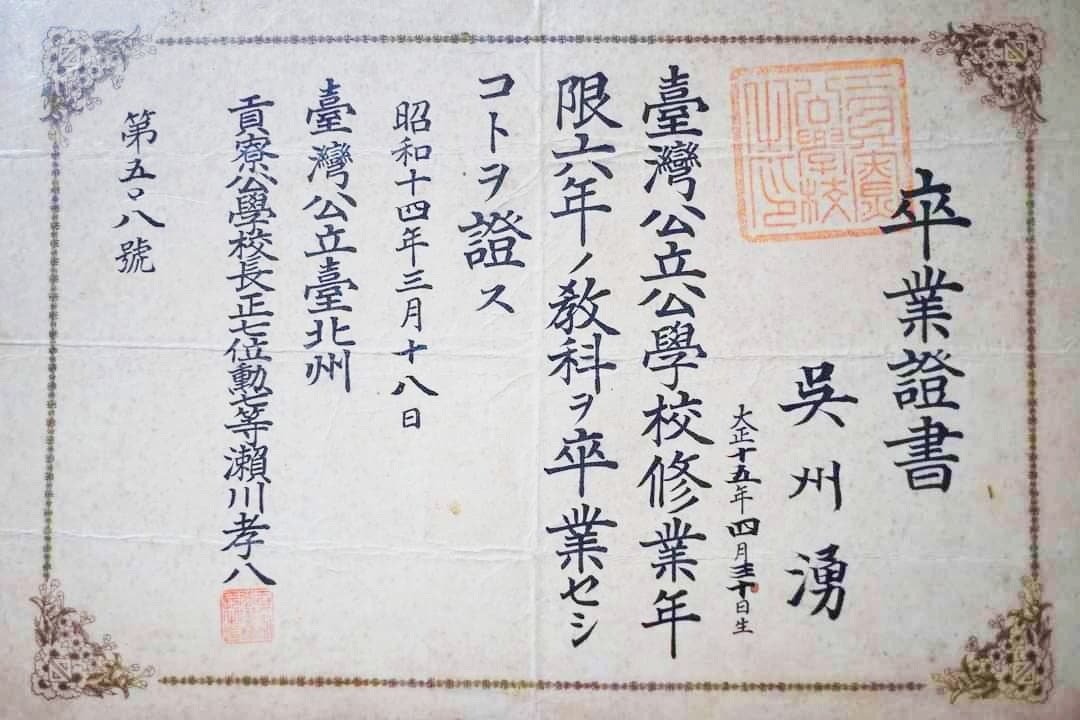 卒業證書
吳州湧
大正十五年四月三十日生
臺灣公立公學校修業年
限六年ノ教科ヲ卒業セシ
コトヲ證ス
昭和十四年三月十八日
臺灣公立臺北州
貢寮公學校長正七位勳七等瀨川孝八
第五〇八號
貢寮
公學校
之印